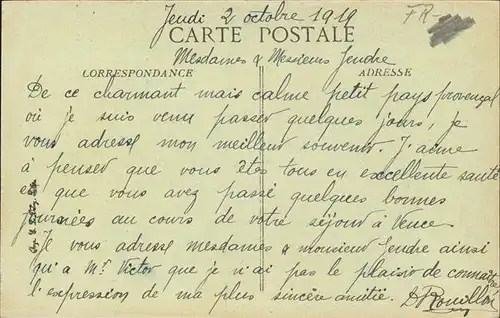 Jeudi 2 octobre 1919
FR-
CARTE POSTALE
Mesdames & Messieurs Gendre
CORRESPONDANCE
ADRESSE
De ce charmant mais calme petit pays provençal
où je suis venu passer quelques jours, je
vous adresse mon meilleur souvenir. J'aime
à penser que vous êtes tous en excellente santé
et que vous avez passé quelques bonnes
journées au cours de votre séjour à Vence
Je vous adresse mesdames & monsieur Gendre ainsi
qu'a Mr Victor que je n'ai pas le plaisir de connaitre
l'expression de ma plus sincère amitié. Rouillon